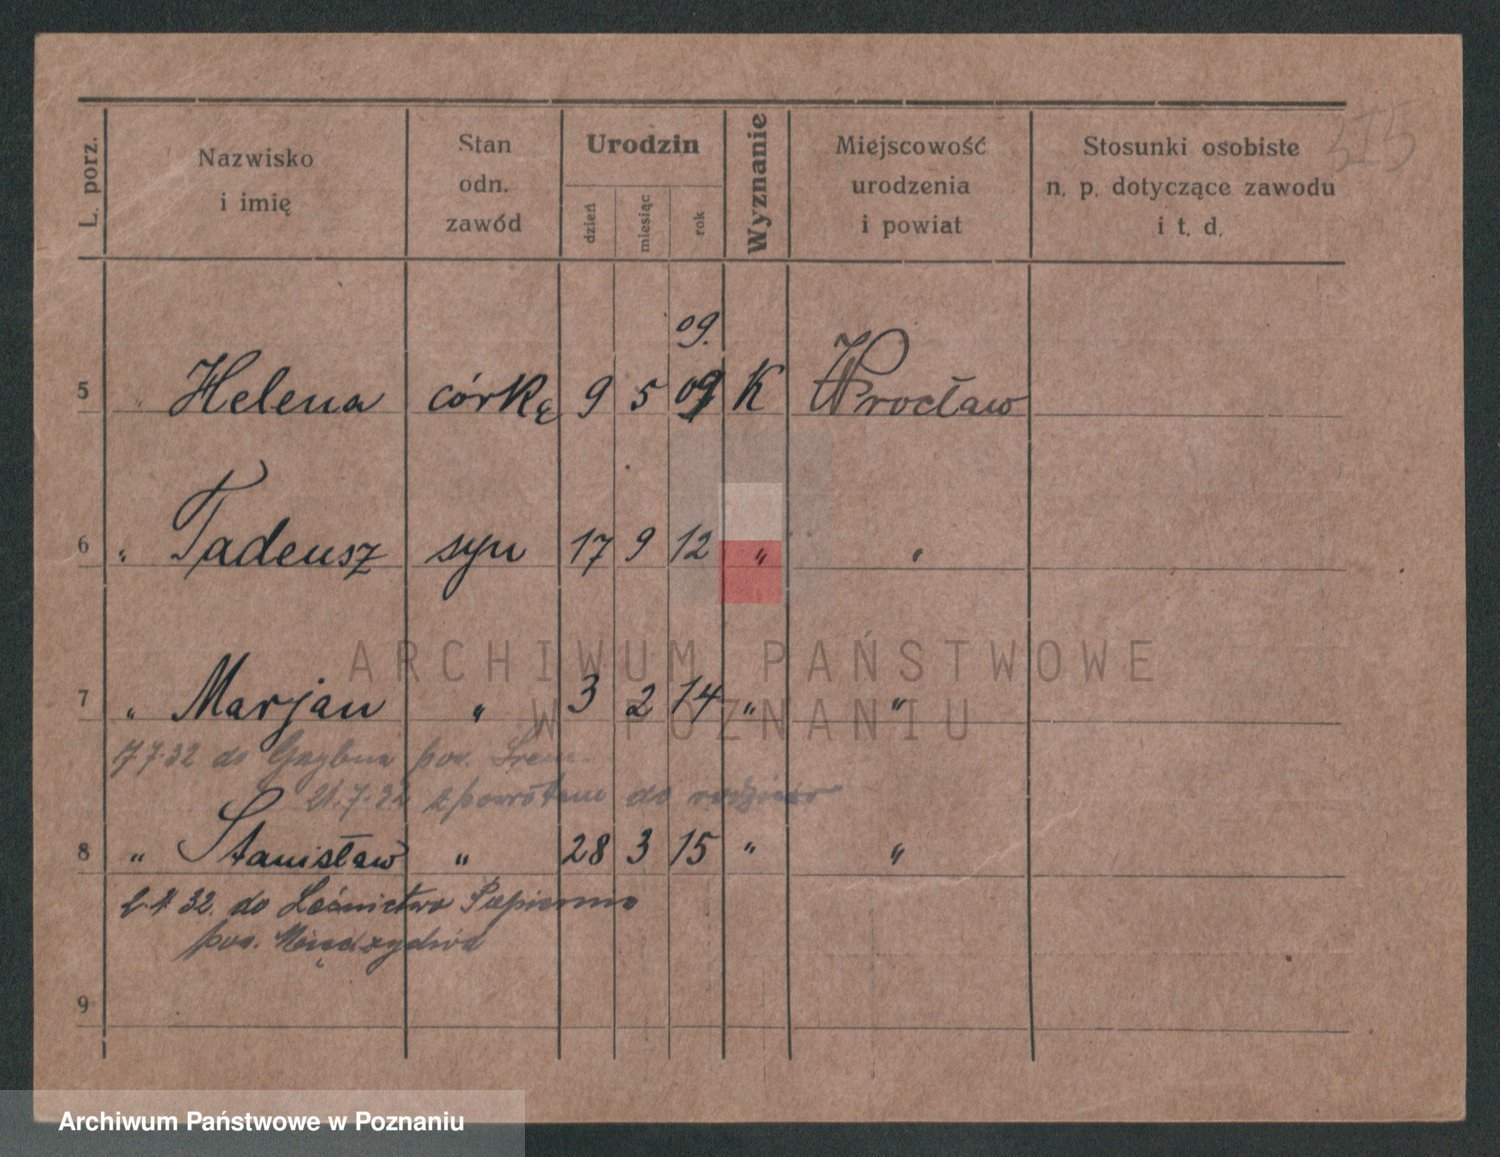 L. porz.
Nazwisko
i imię
Stan
odn.
zawód
Urodzin
dzień
miesiąc
rok
Wyznanie
Miejscowość
urodzenia
i powiat
Stosunki osobiste
n. p. dotyczące zawodu
i t. d.
09.
5 " Helena córkę 9 5 09 K Wrocław
6 " Tadeusz syn 17 9 12 " "
7 " Marjan " 3 2 14 " "
do pow. Śrem
21.7.32 z powrotem do
8 " Stanisław " 28 3 15 " "
32. do Leśnictwo Papiernia
pow. Międzychód
9
ARCHIWUM PAŃSTWOWE
W POZNANIU
Archiwum Państwowe w Poznaniu